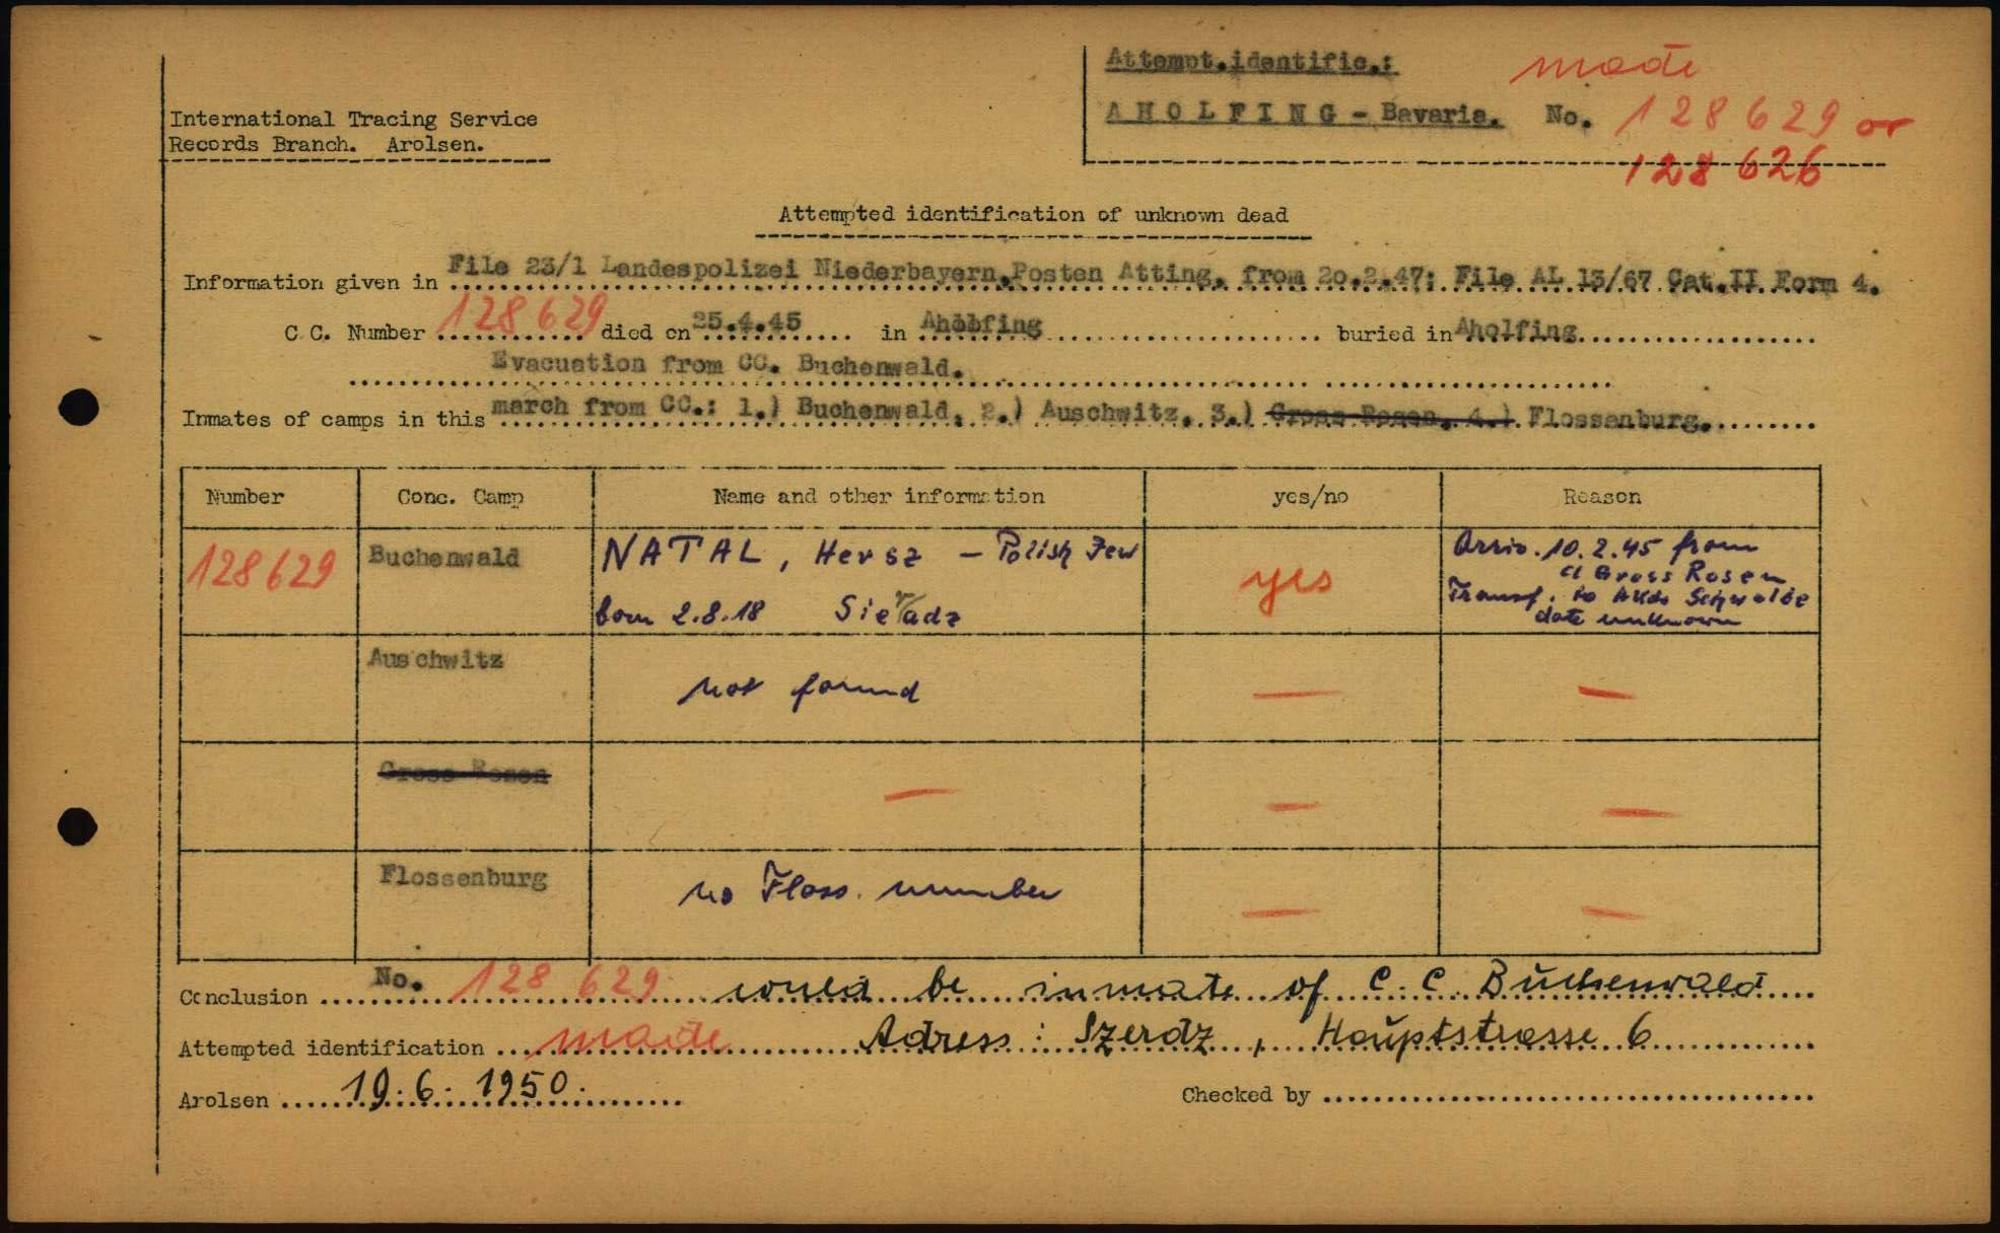 Attempt.identific.: made
International Tracing Service
Records Branch. Arolsen.
AHOLFING - Bavaria. No. 128 629 or
128 626
Attempted identification of unknown dead
Information given in File 23/1 Landespolizei Niederbayern,Posten Atting, from 20.2.47; File AL 13/67 Cat.II Form 4.
C.C. Number 128 629 died on 25.4.45 in Aholfing buried in Aholfing
Evacuation from CC. Buchenwald.
Inmates of camps in this march from CC.: 1.) Buchenwald, 2.) Auschwitz, 3.) Gross Rosen, 4.) Flossenburg.
Number Conc. Camp Name and other information yes/no Reason
128629 Buchenwald NATAL, Hersz - Polish Jew
born 2.8.18 Sieradz
yes
Arriv. 10.2.45 from
cl Gross Rosen
Transf. to Akdo Schwalbe
date unknown
Auschwitz not found — —
Gross Rosen — — —
Flossenburg no Floss. number — —
Conclusion No. 128 629 would be inmate of C.C. Buchenwald
Attempted identification made Adress: Szerdz, Hauptstrasse 6
Arolsen 19.6.1950. Checked by